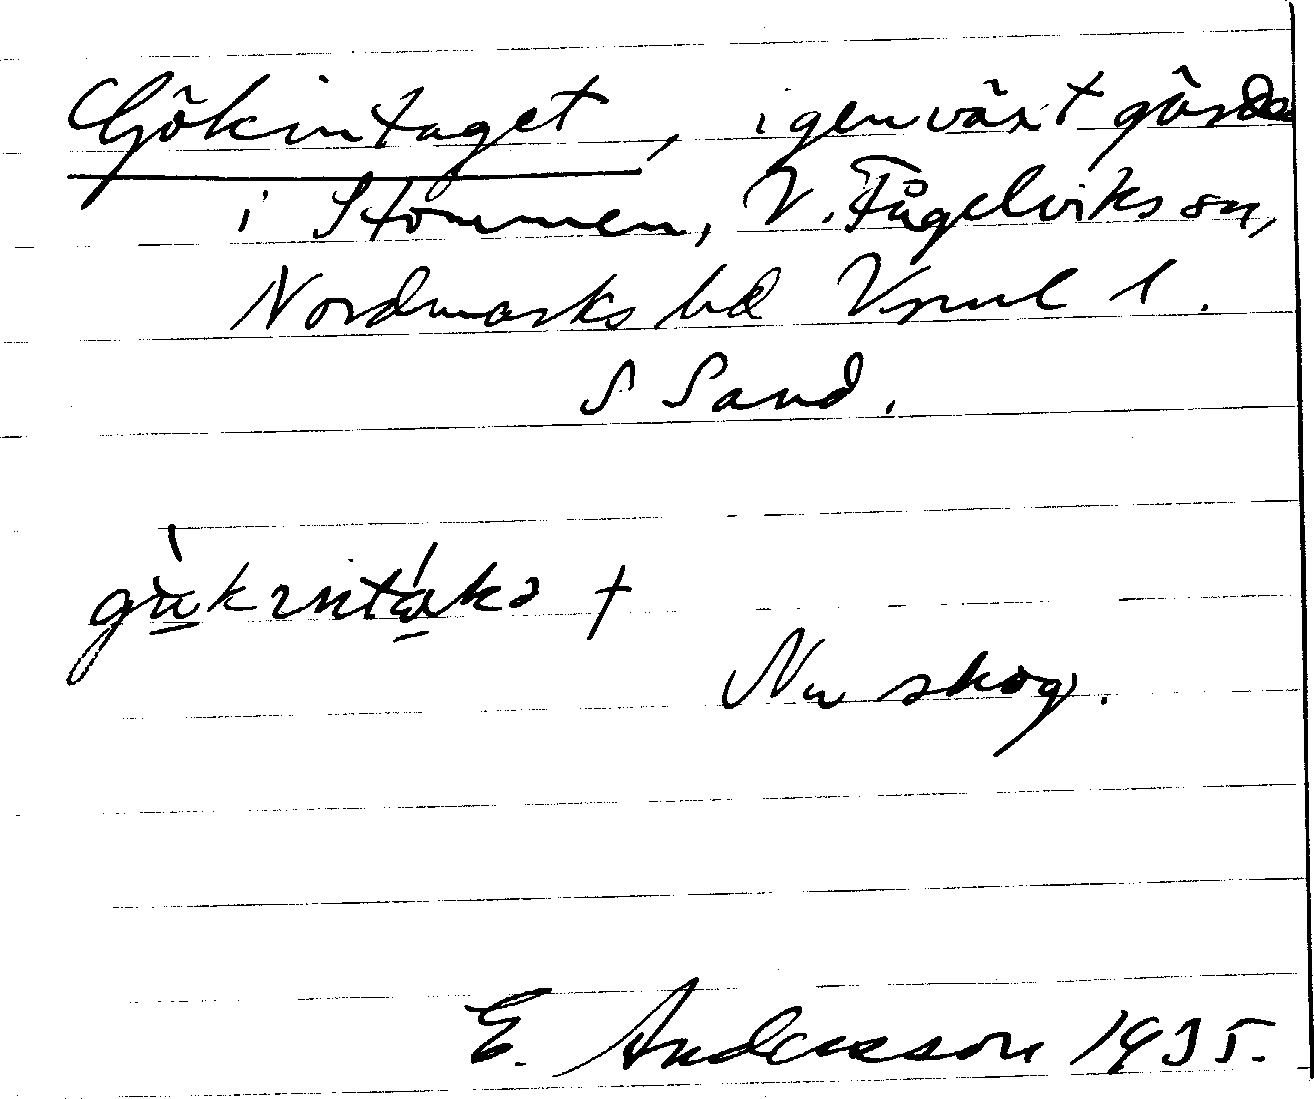 Gökintaget, igenväxt gärde
i Stommen, V. Fågelviks sn,
Nordmarks hd Vrml l.
S Sand.
Nu skog.
E. Andersson 1935.